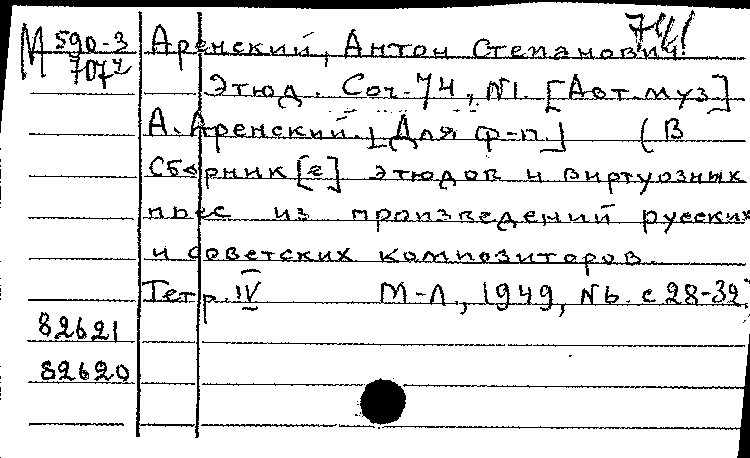 М 590-3 Аренский, Антон Степанович
707² Этюд. Соч. 74, №1. [Авт. муз]
А. Аренский. [Для ф-п.] (В
Сборник[е] этюдов и виртуозных
пьес из произведений русских
и советских композиторов.
Тетр. IV М-Л., 1949, №6. с 28-32)
82621
82620